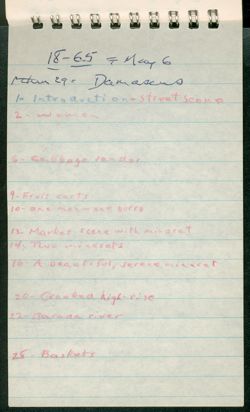 18-65 = May 6
Damascus
1- Introduction - street scene
2- women
6- Cabbage vendor
9- Fruit carts
10- one man - one burro
13- Market scene with minaret
14- Two minarets
16- A beautiful, serene minaret
20- Crowded high-rise
22- Barada river
25- Baskets